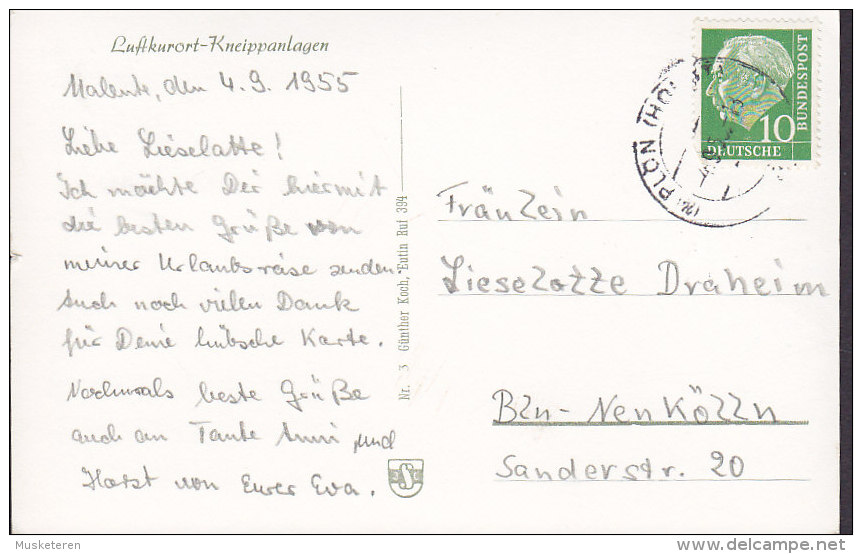 Luftkurort-Kneippanlagen
Malente, den 4.9.1955
Liebe Lieselotte!
Ich möchte Dir hiermit
die besten Grüße von
meiner Urlaubsreise senden.
Auch noch vielen Dank
für Deine hübsche Karte.
Nochmals beste Grüße
auch an Tante Anni und
Horst von Eurer Eva.
Nr. 3 Günther Koch, Eutin Ruf 394
PLÖN (HOL
10
DEUTSCHE
BUNDESPOST
Fräulein
Lieselotte Draheim
Bln-Neukölln
Sanderstr. 20
Musketeren
delcampe.net